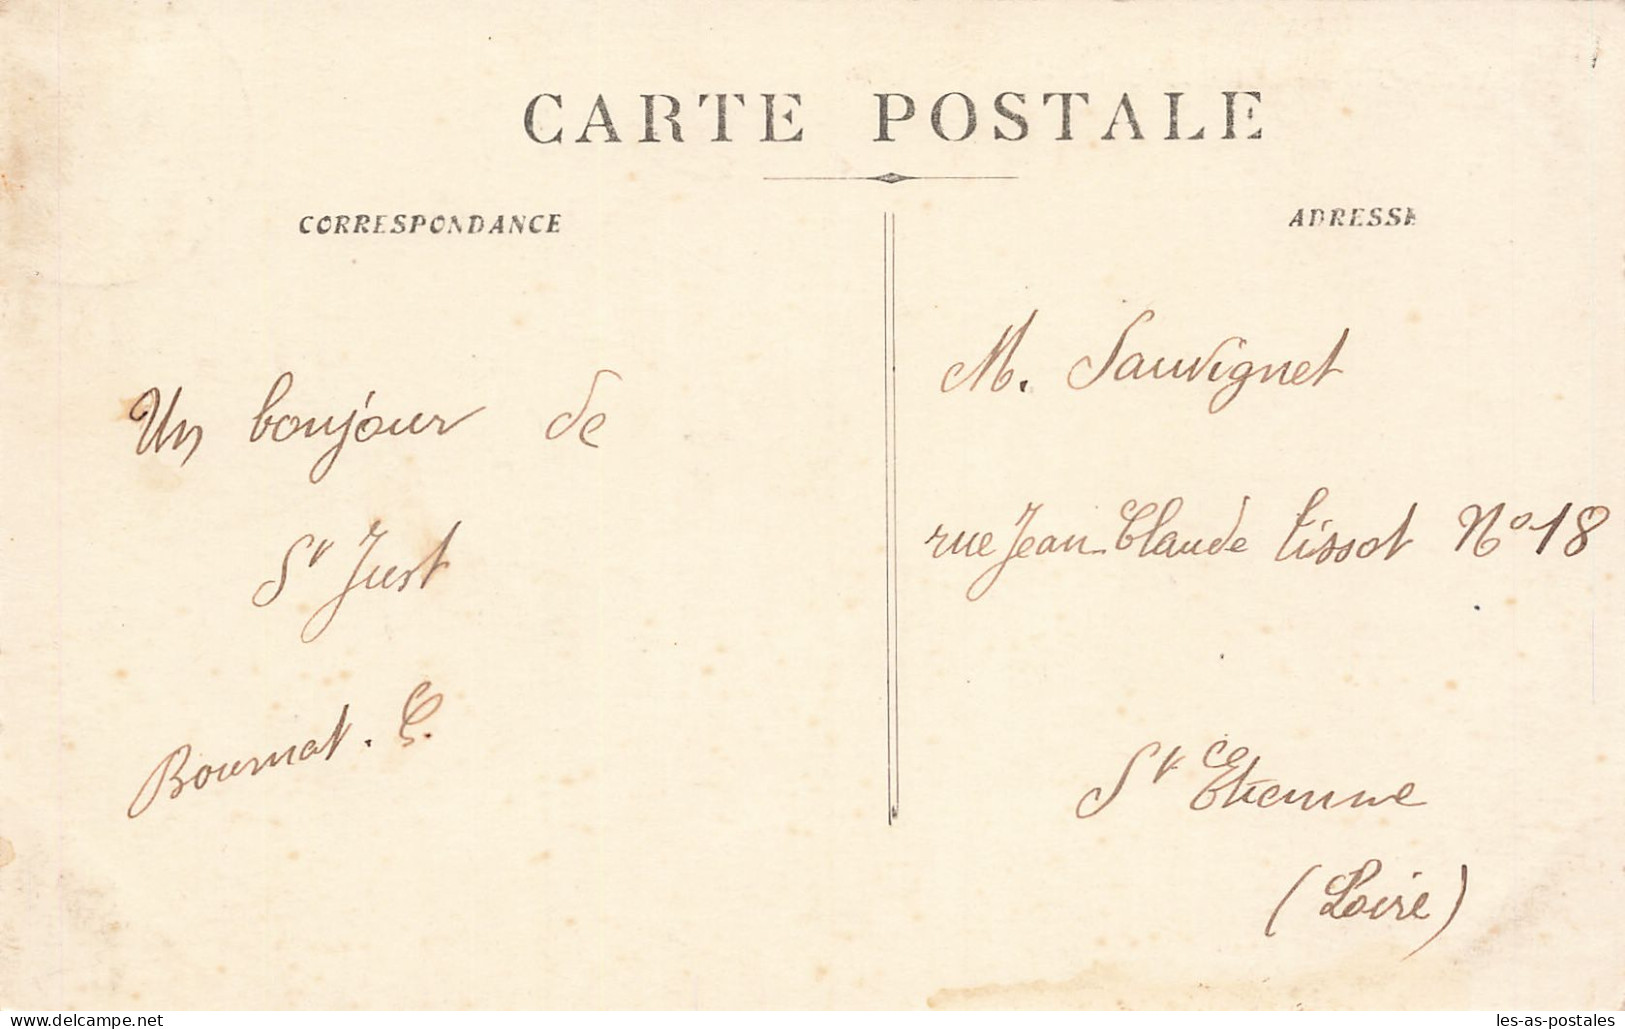 CARTE POSTALE
CORRESPONDANCE
ADRESSE
Un bonjour de
St Just
Bournat. C.
M. Sauvignet
rue Jean-Claude Tissot No 18
St Etienne
(Loire)
www.delcampe.net
les-as-postales